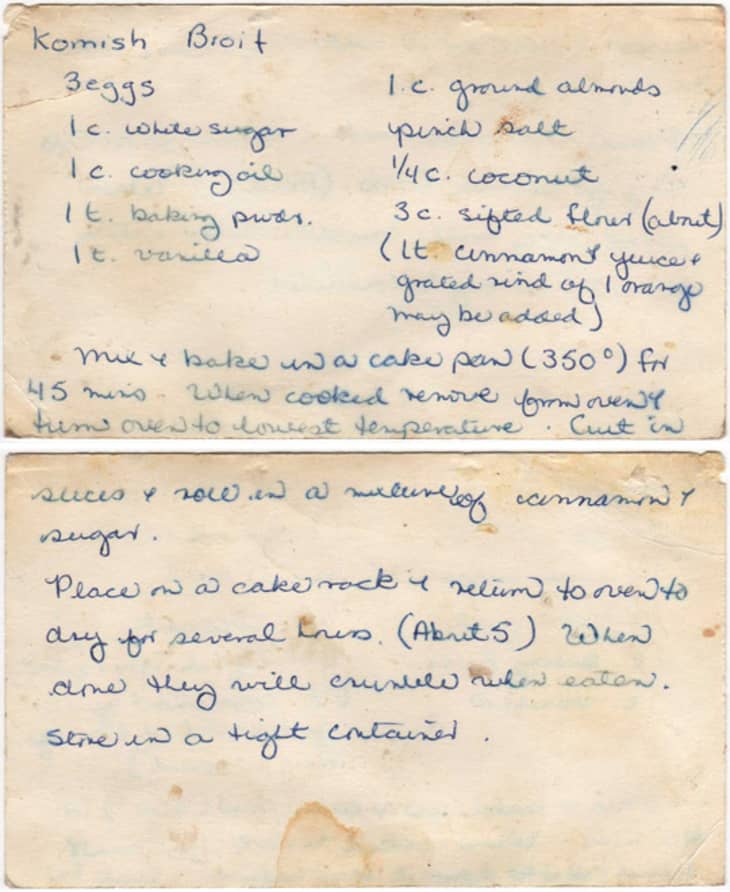 Komish Broit
3 eggs
1 c. white sugar
1 c. cooking oil
1 t. baking pwdr.
1 t. vanilla
1 c. ground almonds
pinch salt
1/4 c. coconut
3 c. sifted flour (about)
(1t. cinnamon & juice &
grated rind of 1 orange
may be added)
Mix & bake in a cake pan (350°) for
45 mins. When cooked remove from oven &
turn oven to lowest temperature. Cut in
slices & roll in a mixture of cinnamon &
sugar.
Place on a cake rack & return to oven to
dry for several hours. (About 5) When
done they will crumble when eaten.
Store in a tight container.